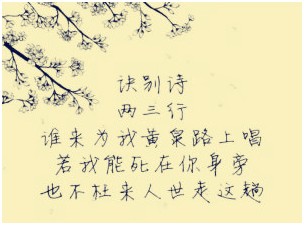 诀别诗
两三行
谁来为我黄泉路上唱
若我能死在你身旁
也不枉来人世走这趟